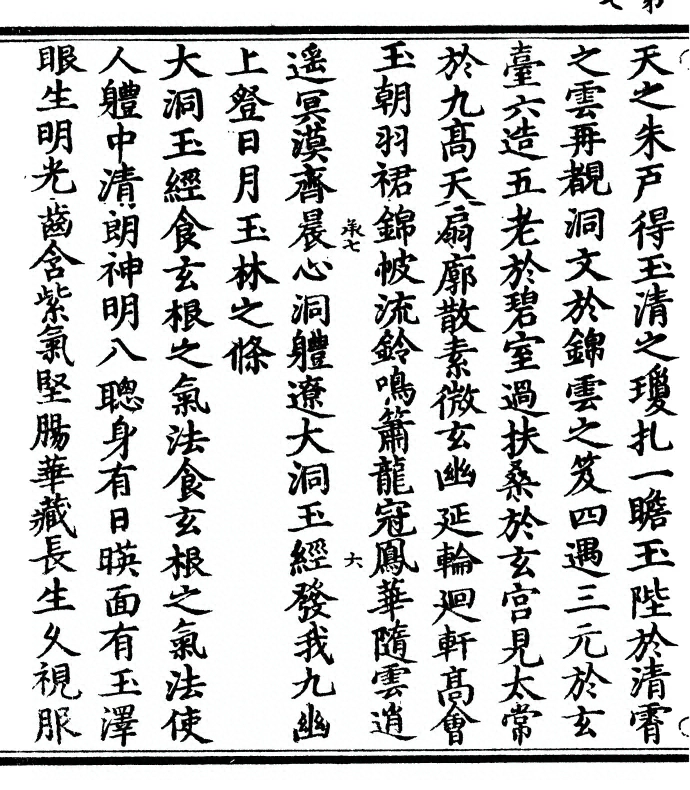 天之朱戸得玉清之瓊札一瞻玉陛於清霄
之雲再覩洞文於錦雲之笈四遇三元於玄
臺六造五老於碧室過扶桑於玄宫見太常
於九髙天扇廓散素微玄幽延輪廻軒髙會
玉朝羽裙錦帔流鈴鳴簫龍冠鳳華隨雲逍
遥冥漠齊晨心洞軆遼大洞玉經發我九幽
承七
六
上登日月玉林之條
大洞玉經食玄根之氣法食玄根之氣法使
人軆中清朗神明八聰身有日暎面有玉澤
眼生明光齒含紫氣堅腸華藏長生久視服